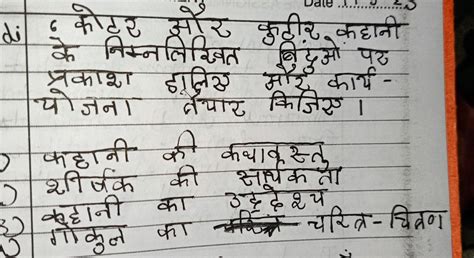 Date 11 5 23
di 6 कोटर और कुटीर कहानी
के निम्नलिखित बिंदुओ पर
प्रकाश डालिए और कार्य -
योजना तैयार किजिए ।
कहानी की कथावस्तु
शीर्षक की सार्थकता
3) कहानी का उद्देश्य
गोकुल का चरित्र - चित्रण